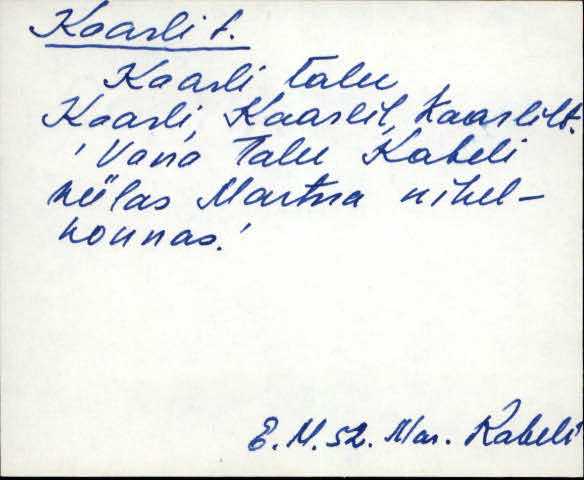 Kaarli t.
Kaarli talu
Kaarli, Kaarlil, Kaarlilt.
'Vana talu Kabeli
külas Martna kihel-
konnas.'
E. M. 52. Mar. Kabeli